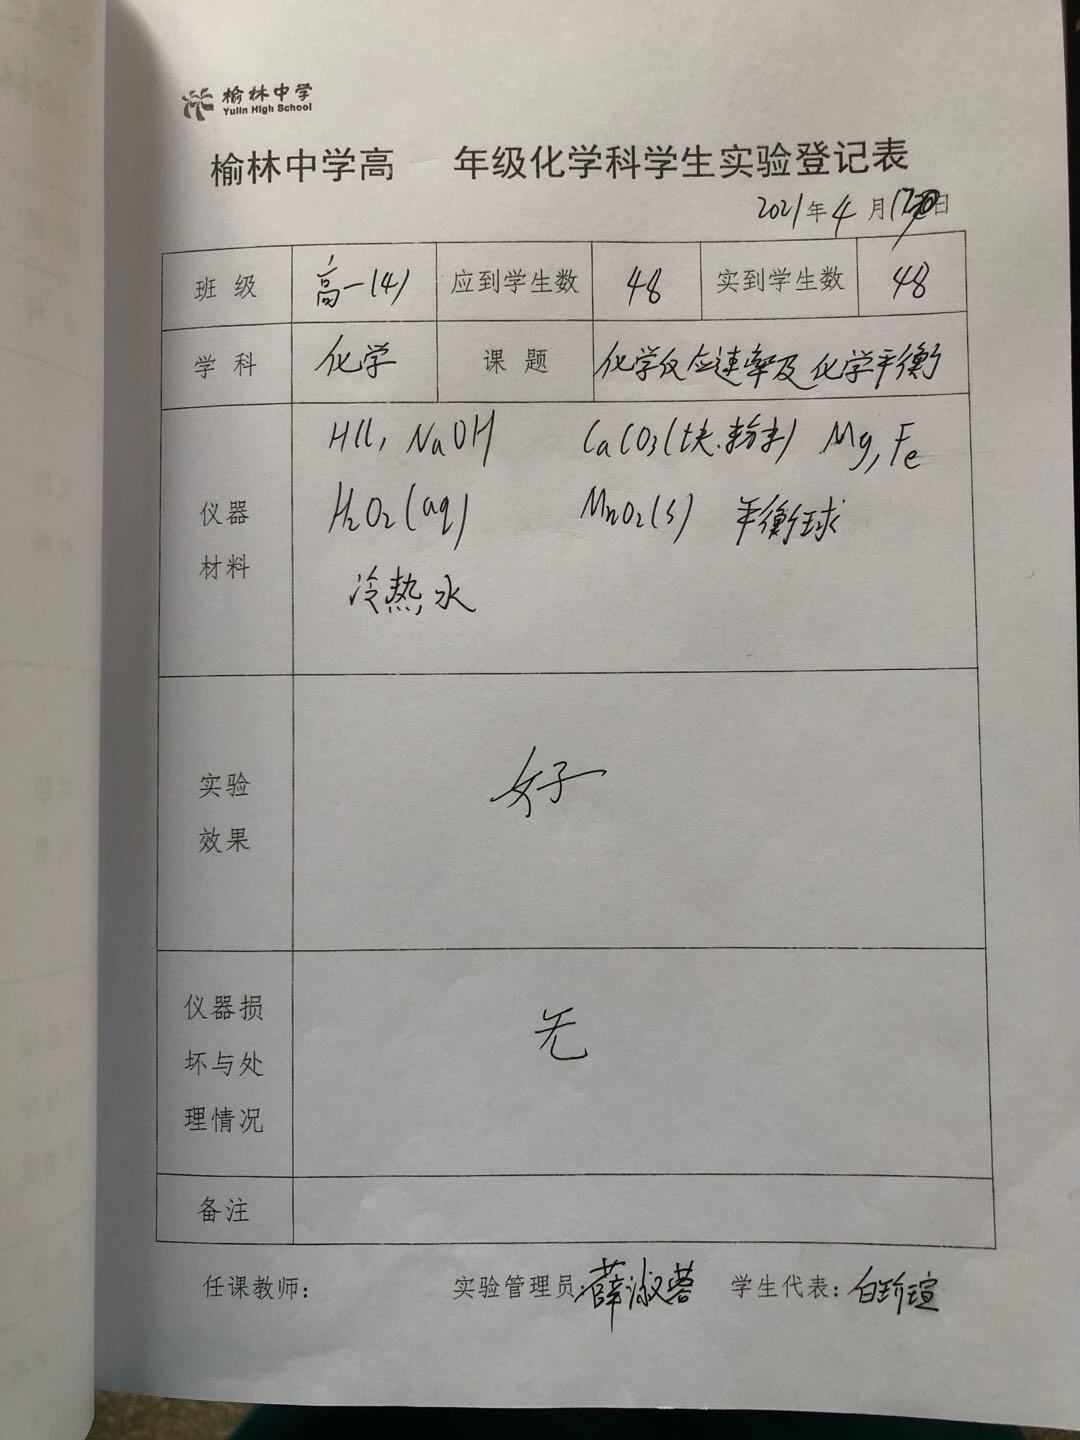 榆林中学
Yulin High School
榆林中学高 年级化学科学生实验登记表
2021年4月 日
班级 高一(4) 应到学生数 48 实到学生数 48
学科 化学 课题 化学反应速率及化学平衡
仪器材料
HCl, NaOH CaCO3(块.粉末) Mg, Fe
H2O2(aq) MnO2(s) 平衡球
冷热水
实验效果 好
仪器损坏与处理情况 无
备注
任课教师: 实验管理员:薛淑蓉 学生代表:白珍瑄